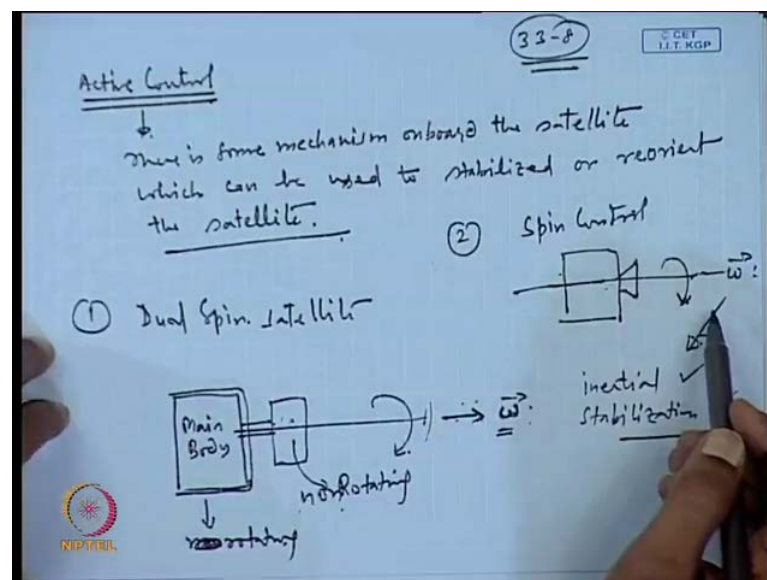 33-8
© CET
I.I.T. KGP
Active Control
There is some mechanism onboard the satellite
which can be used to stabilized or reorient
the satellite.
② Spin Control
ω :
inertial ✓
Stabilization
① Dual Spin. satellite
Main
Body
ω :
nonRotating
rotating
NPTEL